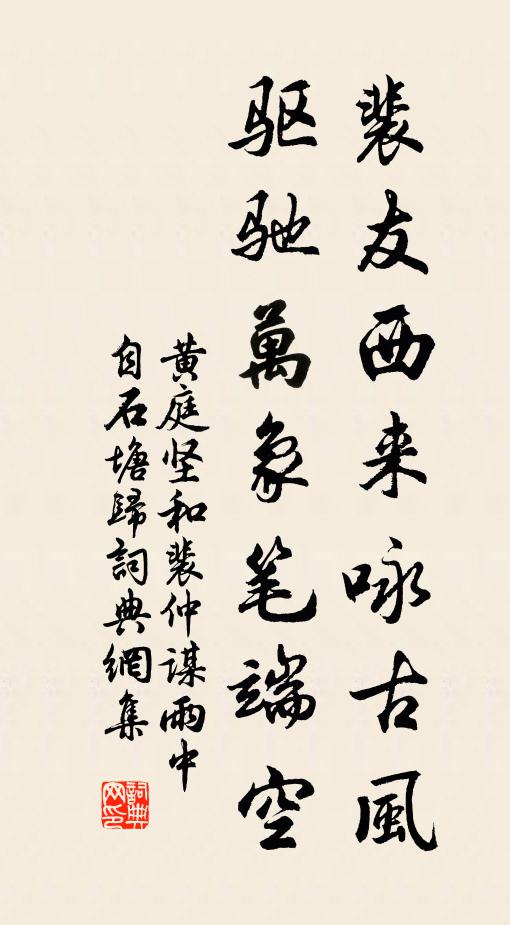 裴友西来咏古風
驱驰萬象笔端空
黄庭坚和裴仲謀雨中
自石塘歸詞典網集
詞典
网印